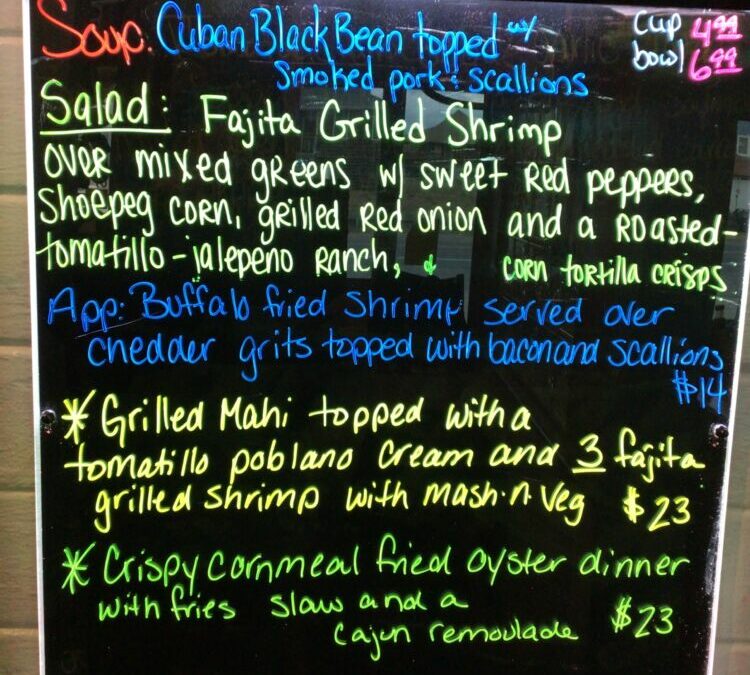 Soup: Cuban Black Bean topped w/ cup 4.99
Smoked pork & scallions bowl 6.99
Salad: Fajita Grilled Shrimp
over mixed greens w/ sweet red peppers,
Shoepeg corn, grilled red onion and a roasted-
tomatillo-jalepeno ranch, & corn tortilla crisps
App: Buffalo fried shrimp served over
chedder grits topped with bacon and scallions
$14
* Grilled Mahi topped with a
tomatillo poblano cream and 3 fajita
grilled shrimp with mash-n-veg $23
* Crispy cornmeal fried oyster dinner
with fries slaw and a
cajun remoulade $23